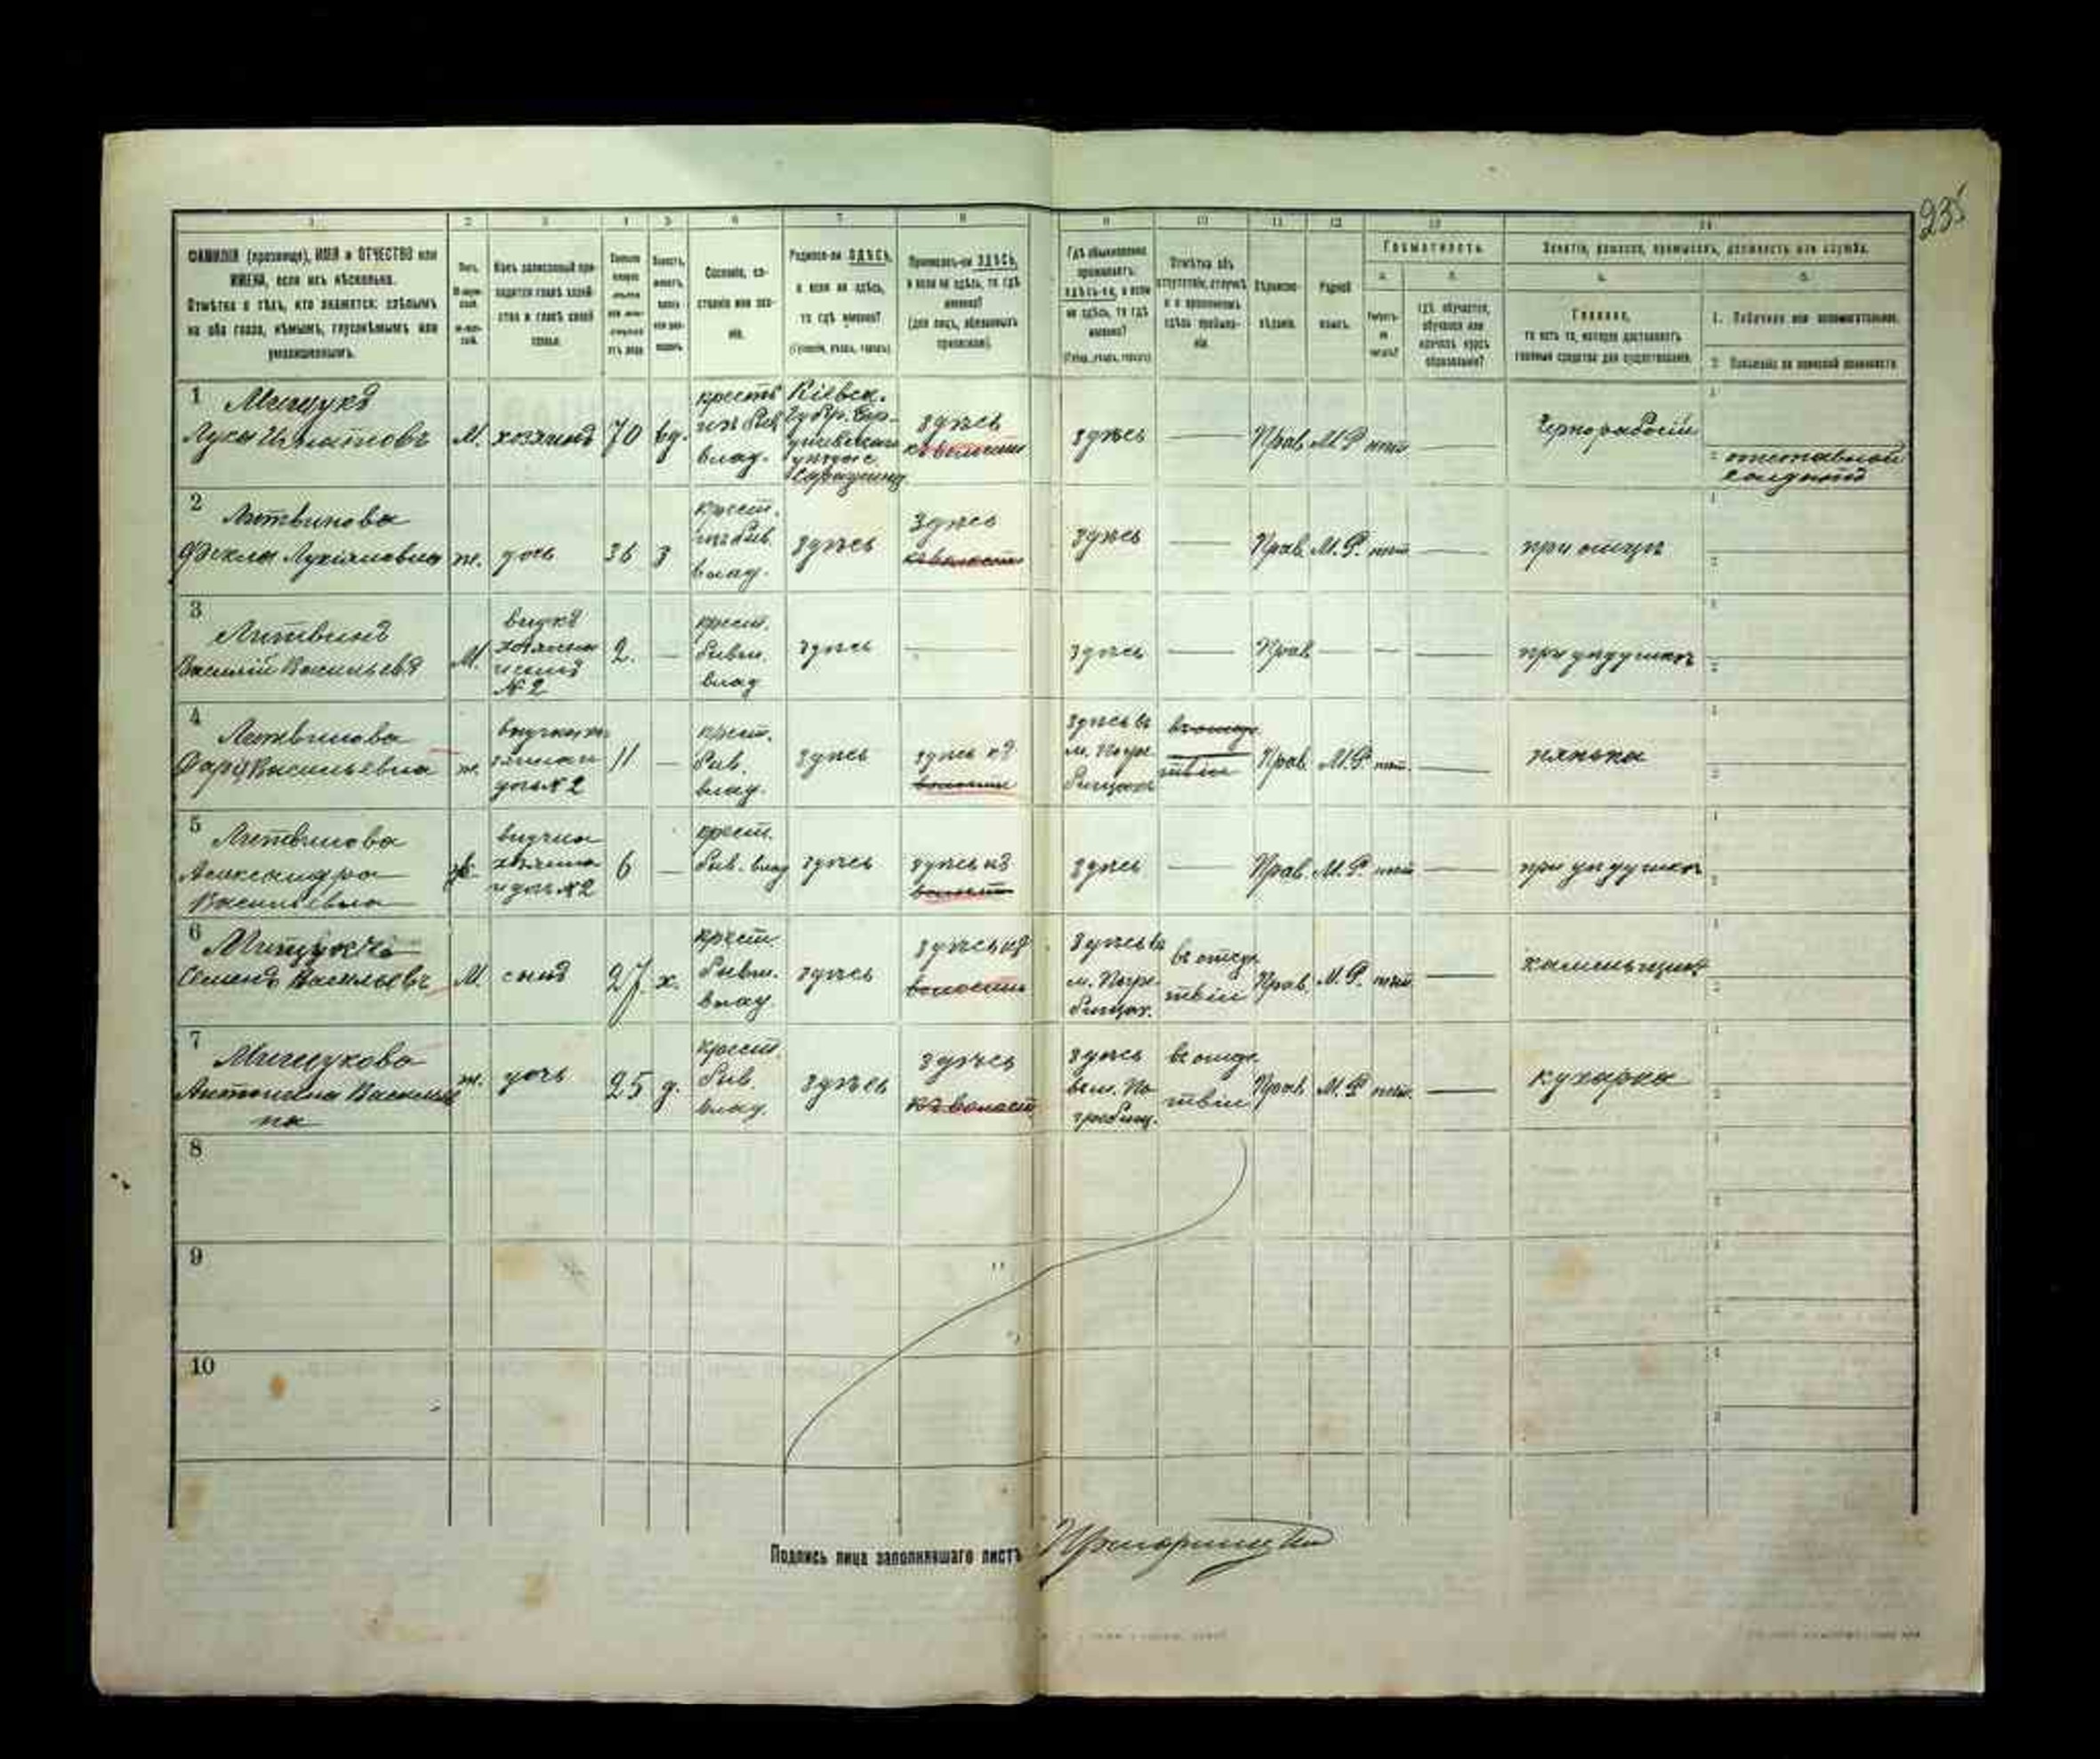 235
1 2 3 4 5 6 7 8 9 10 11 12 13 14
ФАМИЛІЯ (прозвище), ИМЯ и ОТЧЕСТВО или
ИМЕНА, если ихъ нѣсколько.
Отмѣтка о тѣхъ, кто окажется: слѣпымъ
на оба глаза, нѣмымъ, глухонѣмымъ или
умалишеннымъ.
Полъ.
Какъ записанный при-
ходится главѣ хозяй-
ства и главѣ своей
семьи.
Сословіе, со-
стояніе или зва-
ніе.
Родился-ли ЗДѢСЬ,
а если не здѣсь,
то гдѣ именно?
(Губернія, уѣздъ, городъ)
Приписанъ-ли ЗДѢСЬ,
а если не здѣсь, то гдѣ
именно?
(для лицъ, обязанныхъ
припискою).
Гдѣ обыкновенно
проживаетъ:
здѣсь-ли, а если
не здѣсь, то гдѣ
именно?
(Губер., уѣздъ, городъ)
Отмѣтка объ
отсутствіи, отлучкѣ
и о временномъ
здѣсь пребыва-
ніи.
Вѣроиспо-
вѣданіе.
Родной
языкъ.
Грамотность.
а. б.
Умѣетъ-
ли
читать?
Гдѣ обучается,
обучался или
кончилъ курсъ
образованія?
Занятіе, ремесло, промыселъ, должность или служба.
а. б.
Главное,
то есть то, которое доставляетъ
главныя средства для существованія.
1. Побочное или вспомогательное.
2. Положеніе по воинской повинности.
1 Мищукъ
Лука Игнатовъ
М. хозяинъ 70 вд.
крестья
изъ быв
влад.
Кіевск.
Губр. Бер-
дичевскаго
уѣзда с.
здѣсь
къ волости
здѣсь — Прав. М.Р. нѣт —
Чернорабочій
отставной
солдатъ
2 Литвинова
Ѳекла Лукіяновна
ж. дочь 36 з
крест.
изъ быв.
влад.
здѣсь
здѣсь
къ волости
здѣсь — Прав. М.Р. нѣт — при отцѣ
3 Литвинъ
Василій Васильевъ
М.
внукъ
хозяина
и сынъ
№ 2
2. —
крест.
бывш.
влад
здѣсь — здѣсь — Прав — — — при дѣдушкѣ
4 Литвинова
Васильевна
ж.
дочь № 2
11 —
крест.
быв.
влад.
здѣсь
здѣсь къ
волости
здѣсь въ
м. Погре-
бищахъ
въ отсут
ствіи
Прав М.Р нѣт. — нянька
5 Литвинова
Александра
Васильевна
ж.
внучка
хозяина
и дочь №2
6 —
крест.
быв. влад
здѣсь
здѣсь къ
волости
здѣсь — Прав. М.Р. нѣт — при дѣдушкѣ
6
Семенъ Васильевъ
М. сынъ 27. х.
крест.
бывш.
влад.
здѣсь
здѣсь къ
волости
здѣсь въ
м. Погре-
бищах.
въ отсут
ствіи
Прав. М.Р. нѣт — каменьщикъ
7 Мищукова
Антонина Василье
на
ж. дочь 25 д.
крест
быв.
влад.
здѣсь
здѣсь
къ волост
здѣсь
въ м. По
гребищ.
въ отсут
ствіи
Прав М.Р нѣт. — кухарка
8
9
10
Подпись лица заполнявшаго листъ